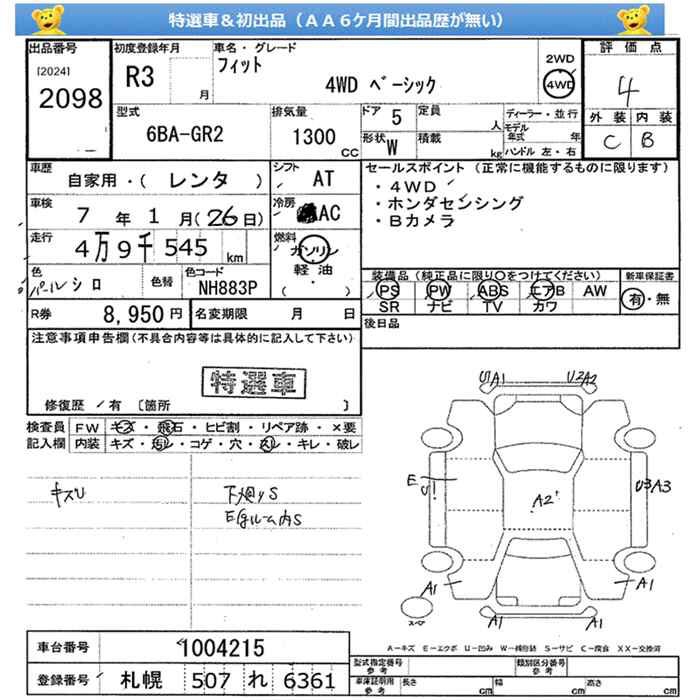 特選車＆初出品（ＡＡ６ケ月間出品歴が無い）
出品番号 初度登録年月 車名・グレード 評価点
[2024] R3 月 フィット 2WD
2098 4WD ベーシック 4WD 4
型式 排気量 ドア 5 定員 人 ディーラー・並行 外装 内装
6BA-GR2 1300 CC 形状 W 積載 kg モデル年式 年 C B
ハンドル 左・右
車歴 シフト セールスポイント（正常に機能するものに限ります）
自家用・（ レンタ ） AT ・４WD
車検 冷房 ・ホンダセンシング
7 年 1 月(26日) AC ・Ｂカメラ
走行 燃料
4万9千545 km ガソリン
軽油
装備品（純正品に限り○をつけてください） 新車保証書
色 色替 色コード PS PW ABS エアB AW 有・無
パールシロ NH883P ( ・ ) SR ナビ TV カワ
R券 8,950円 名変期限 月 日 後日品
注意事項申告欄(不具合内容等は具体的に記入して下さい)
特選車
修復歴／有 〔箇所 〕
検査員 FW キズ・飛石・ヒビ割・リペア跡・×要
記入欄 内装 キズ・汚レ・コゲ・穴・スレ・キレ・破レ
キズU 下廻りS
U1 A1 U2A2
E U A2 U3 A3
A1 A1
A1 A1
スペア
A－キズ E－エクボ U－凹み W－補修跡 S－サビ C－腐食 XX－交換済
車台番号 1004215
型式指定番号 参考 類別区分番号 参考
登録番号 札幌 507 れ 6361
車庫証明用 参考 長さ cm 幅 cm 高さ cm